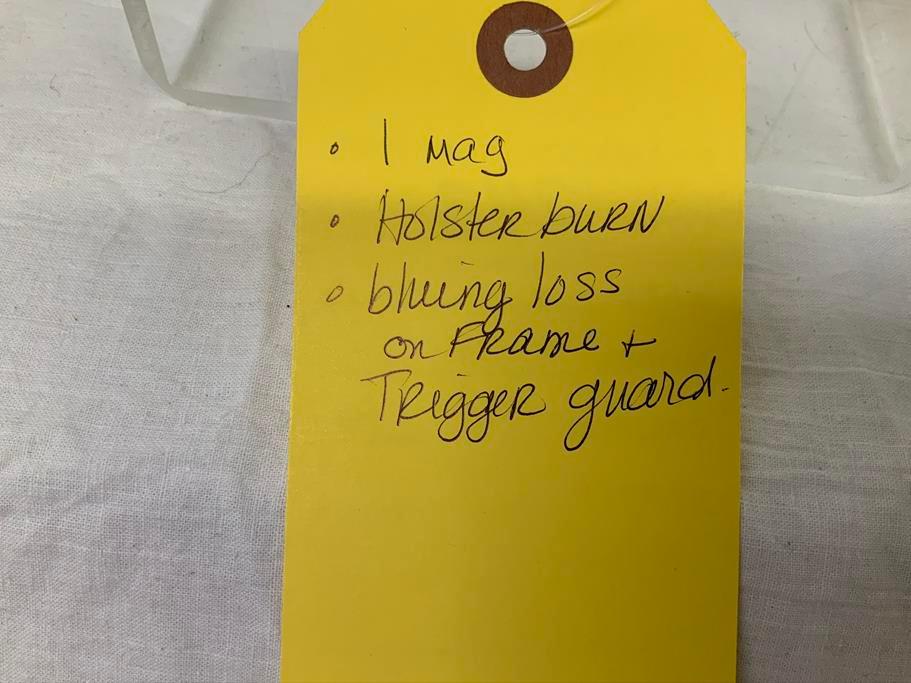 • 1 Mag
• Holster burn
• bluing loss
on Frame +
Trigger guard.